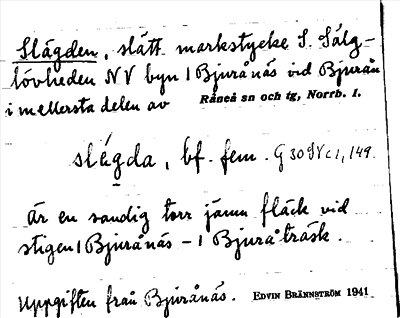 Slägden, slätt markstycke S. Sälg-
lövheden NV byn 1 Bjurånäs vid Bjurån
i mellersta delen av Råneå sn och tg, Norrb. l.
slägda, bf. fem. G 30 NV c 1, 149.
Är en sandig torr jämn fläck vid
stigen 1 Bjurånäs – 1 Bjuråträsk.
Uppgiften från Bjurånäs. EDVIN BRÄNNSTRÖM 1941